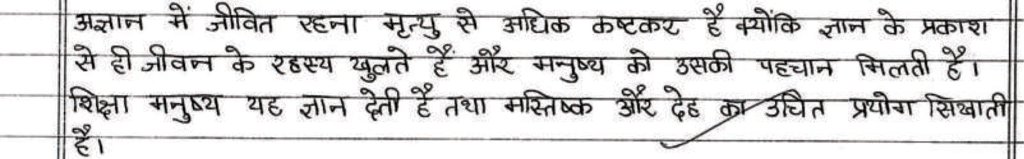 अज्ञान में जीवित रहना मृत्यु से अधिक कष्टकर है क्योंकि ज्ञान के प्रकाश
से ही जीवन के रहस्य खुलते हैं और मनुष्य को उसकी पहचान मिलती है।
शिक्षा मनुष्य यह ज्ञान देती है तथा मस्तिष्क और देह का उचित प्रयोग सिखाती
है।